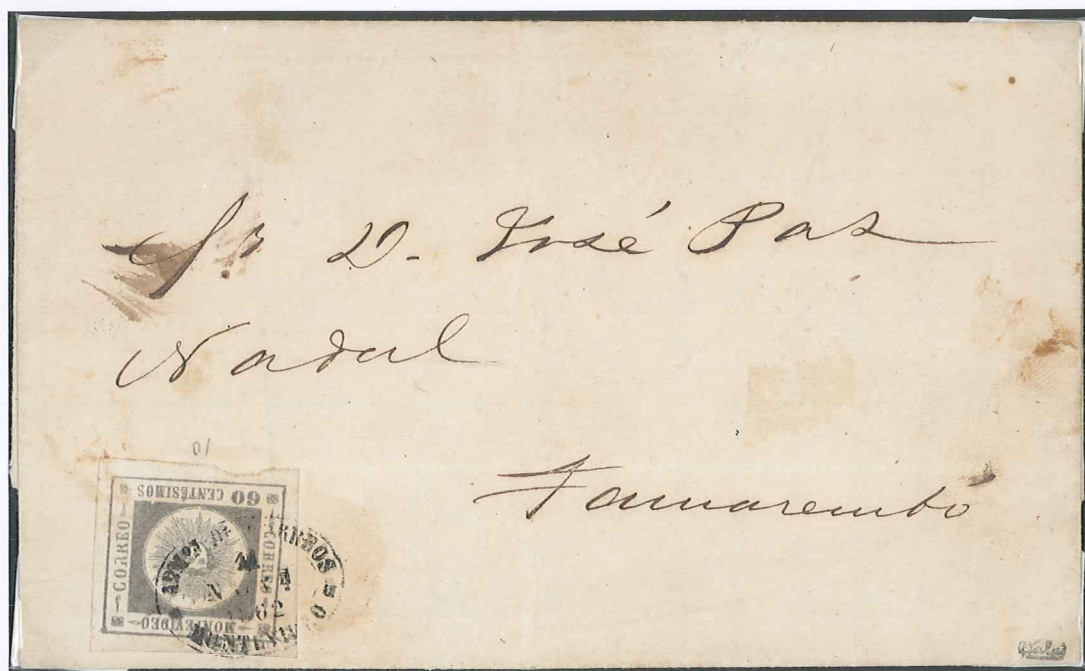 Sr D. José Paz
Nadal
Tacuarembó
10
60 CENTÉSIMOS
CORREO
CORREO
MONTEVIDEO